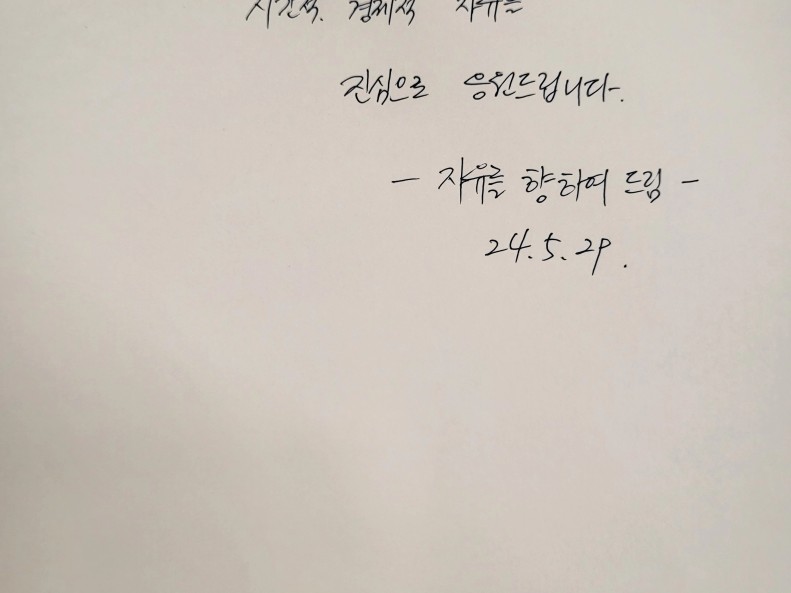 시간적. 경제적 자유를
진심으로 응원드립니다.
- 자유를 향하여 드림 -
24.5.29.